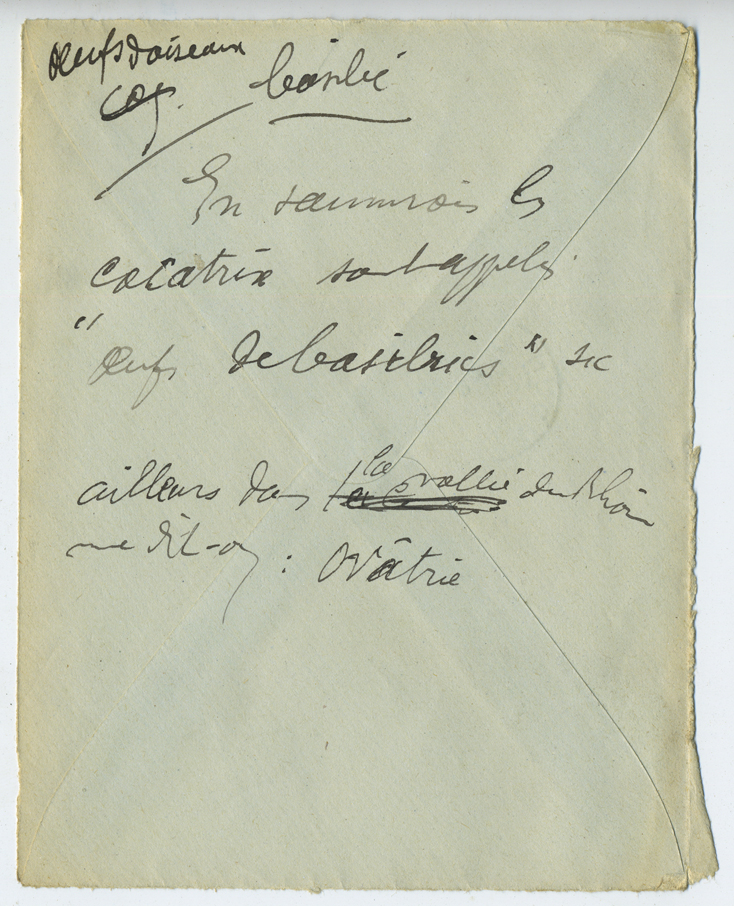 Oeufs d'oiseaux
coq. basilic
En saumurois les
cocatrix sont appelés
"Oeufs de basilics" sic
ailleurs dans la vallée du Rhône
me dit-on : Ovâtrie